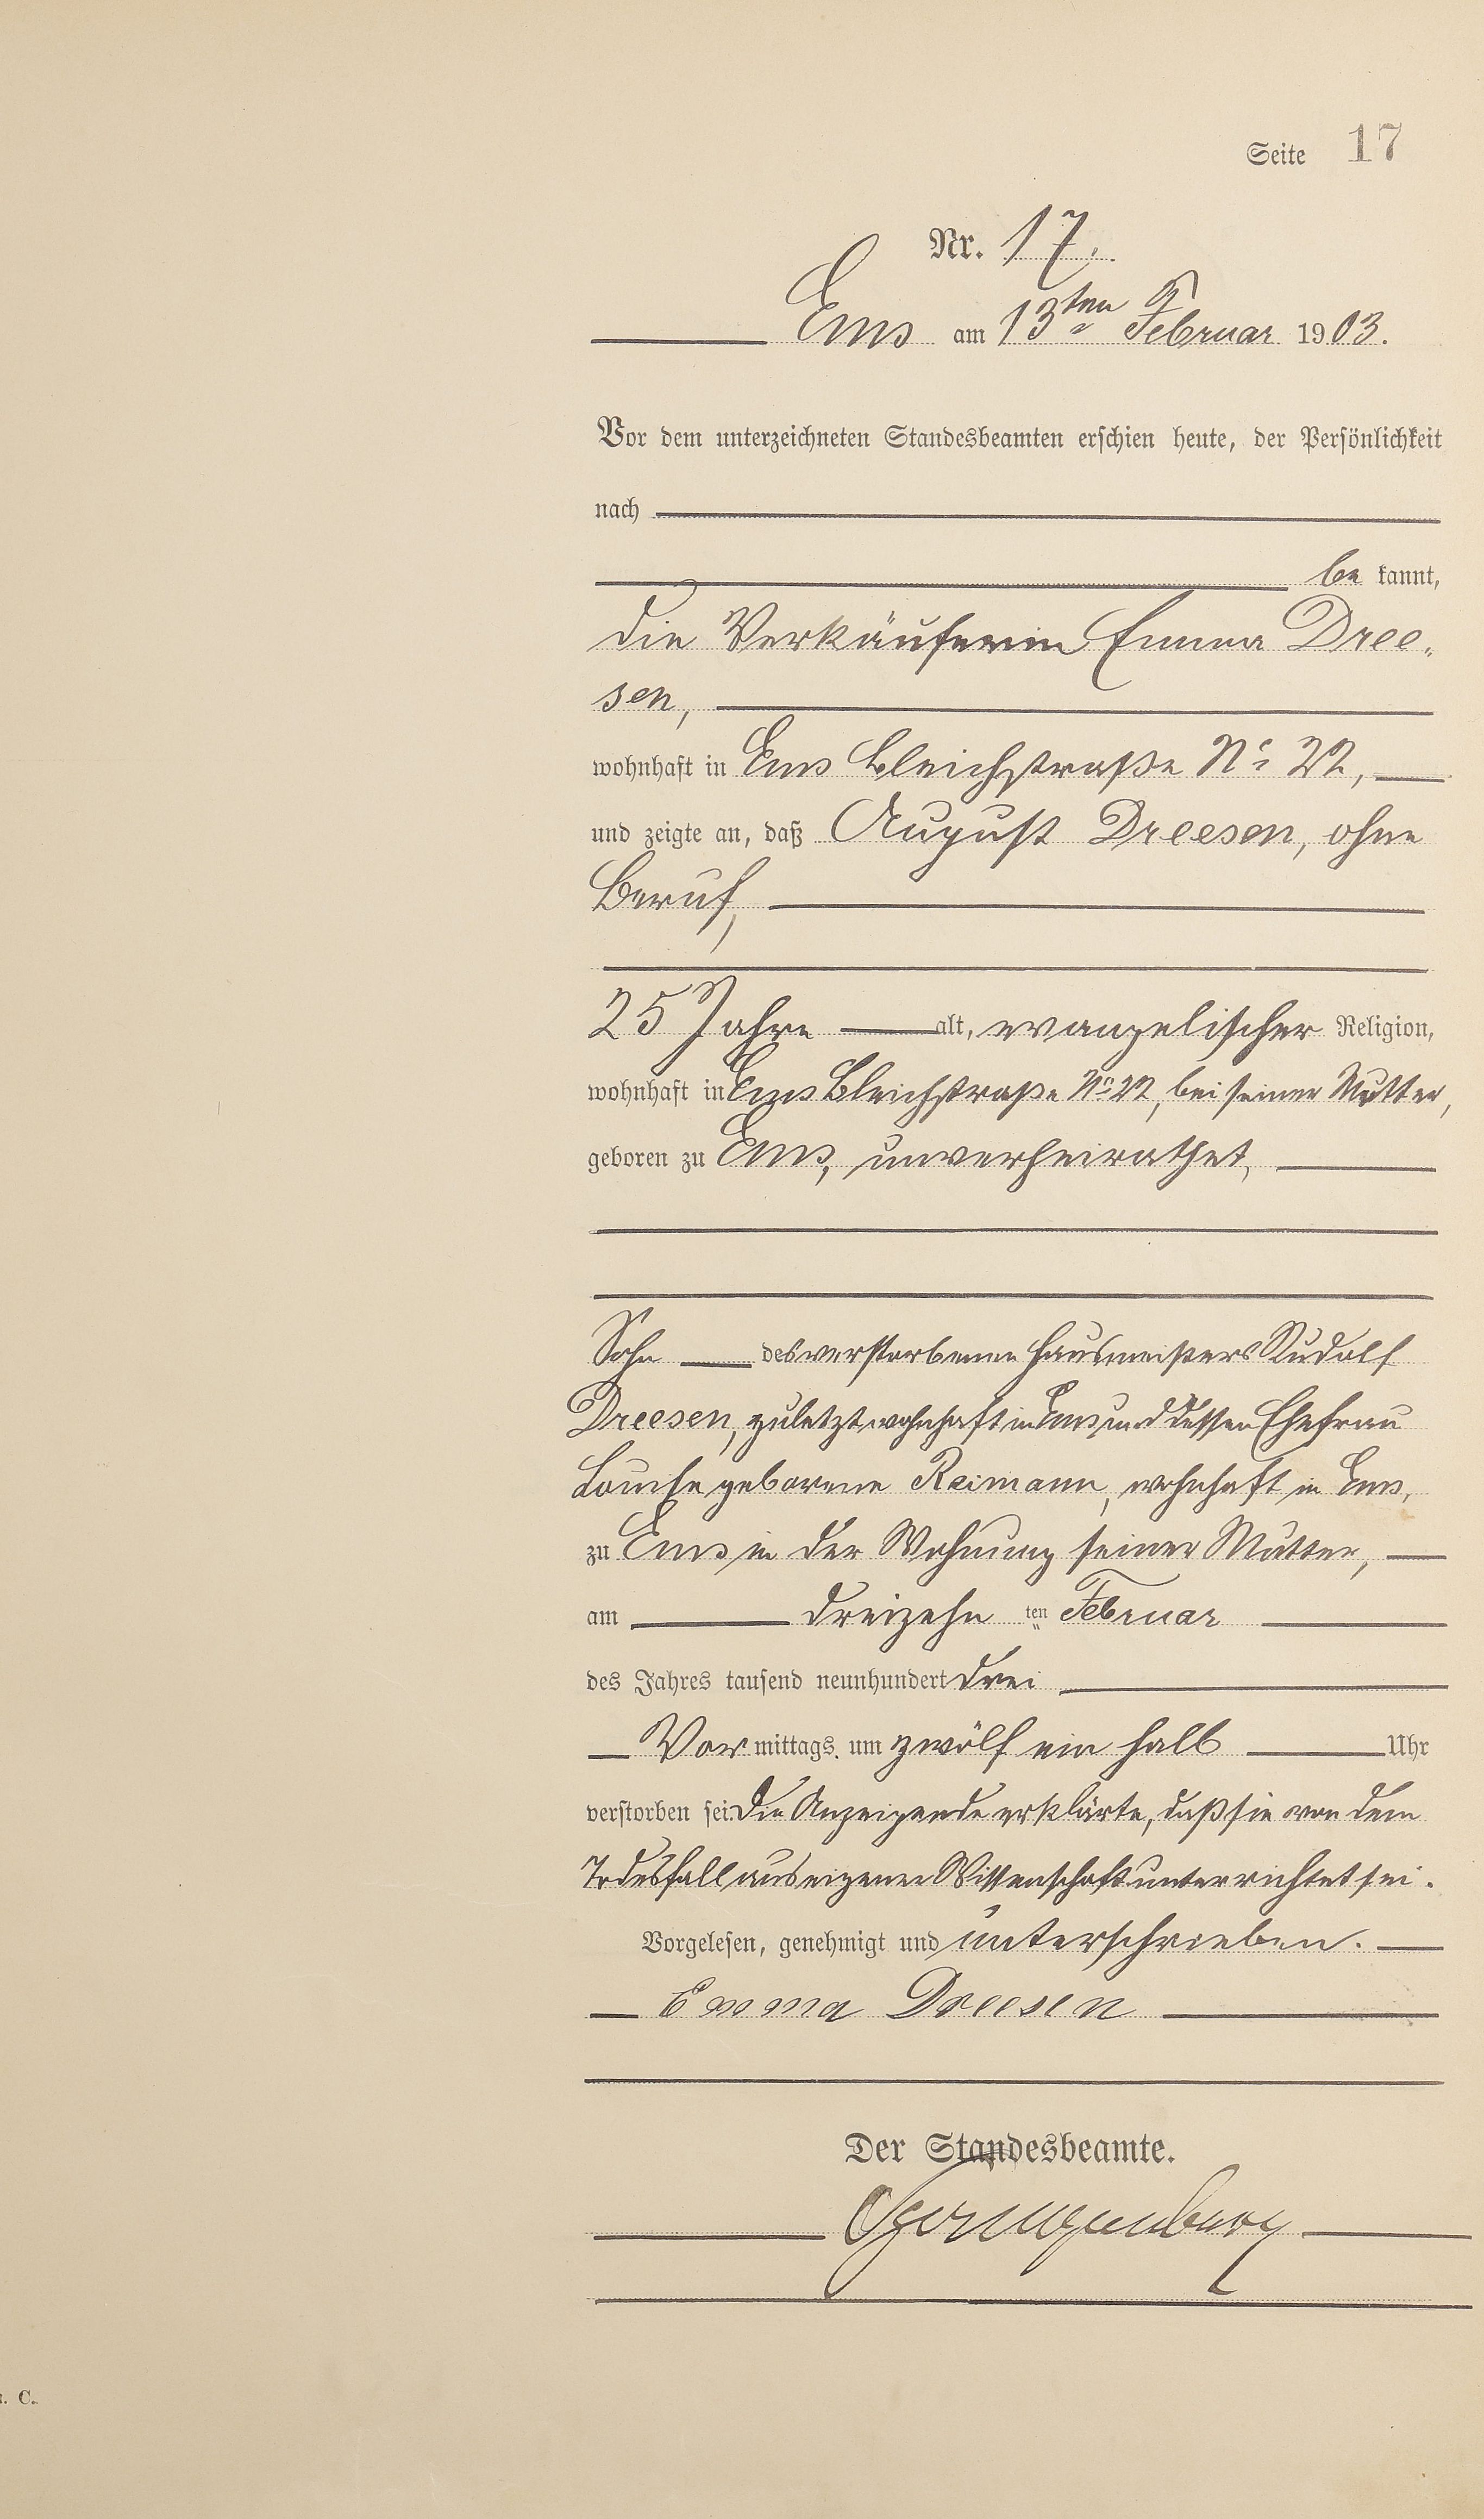 Seite 17
Nr. 17.
Ems am 13ten Februar 1903.
Vor dem unterzeichneten Standesbeamten erschien heute, der Persönlichkeit
nach
bekannt,
die Verkäuferin Emma Dree-
sen,
wohnhaft in Ems Bleichstraße No 22,
und zeigte an, daß August Dreesen, ohne
Beruf,
25 Jahre alt, evangelischer Religion,
wohnhaft in Ems Bleichstraße No 22, bei seiner Mutter,
geboren zu Ems, unverheirathet,
Sohn des verstorbenen Hausmeisters Rudolf
Dreesen, zuletzt wohnhaft in Ems und dessen Ehefrau
Louise geborene Reimann, wohnhaft in Ems,
zu Ems in der Wohnung seiner Mutter,
am dreizehn ten Februar
des Jahres tausend neunhundert drei
Vormittags um zwölf ein halb Uhr
verstorben sei. Die Anzeigende erklärte, daß sie von dem
Todesfall aus eigener Wissenschaft unterrichtet sei.
Vorgelesen, genehmigt und unterschrieben.
Emma Dreesen
Der Standesbeamte.
C.